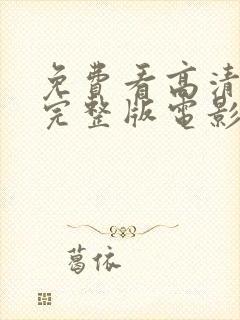 免費看高清
完整版電影
葛依